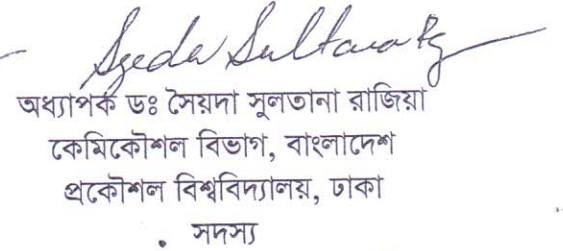 Syeda Sultana Rz
অধ্যাপক ডঃ সৈয়দা সুলতানা রাজিয়া
কেমিকৌশল বিভাগ, বাংলাদেশ
প্রকৌশল বিশ্ববিদ্যালয়, ঢাকা
সদস্য